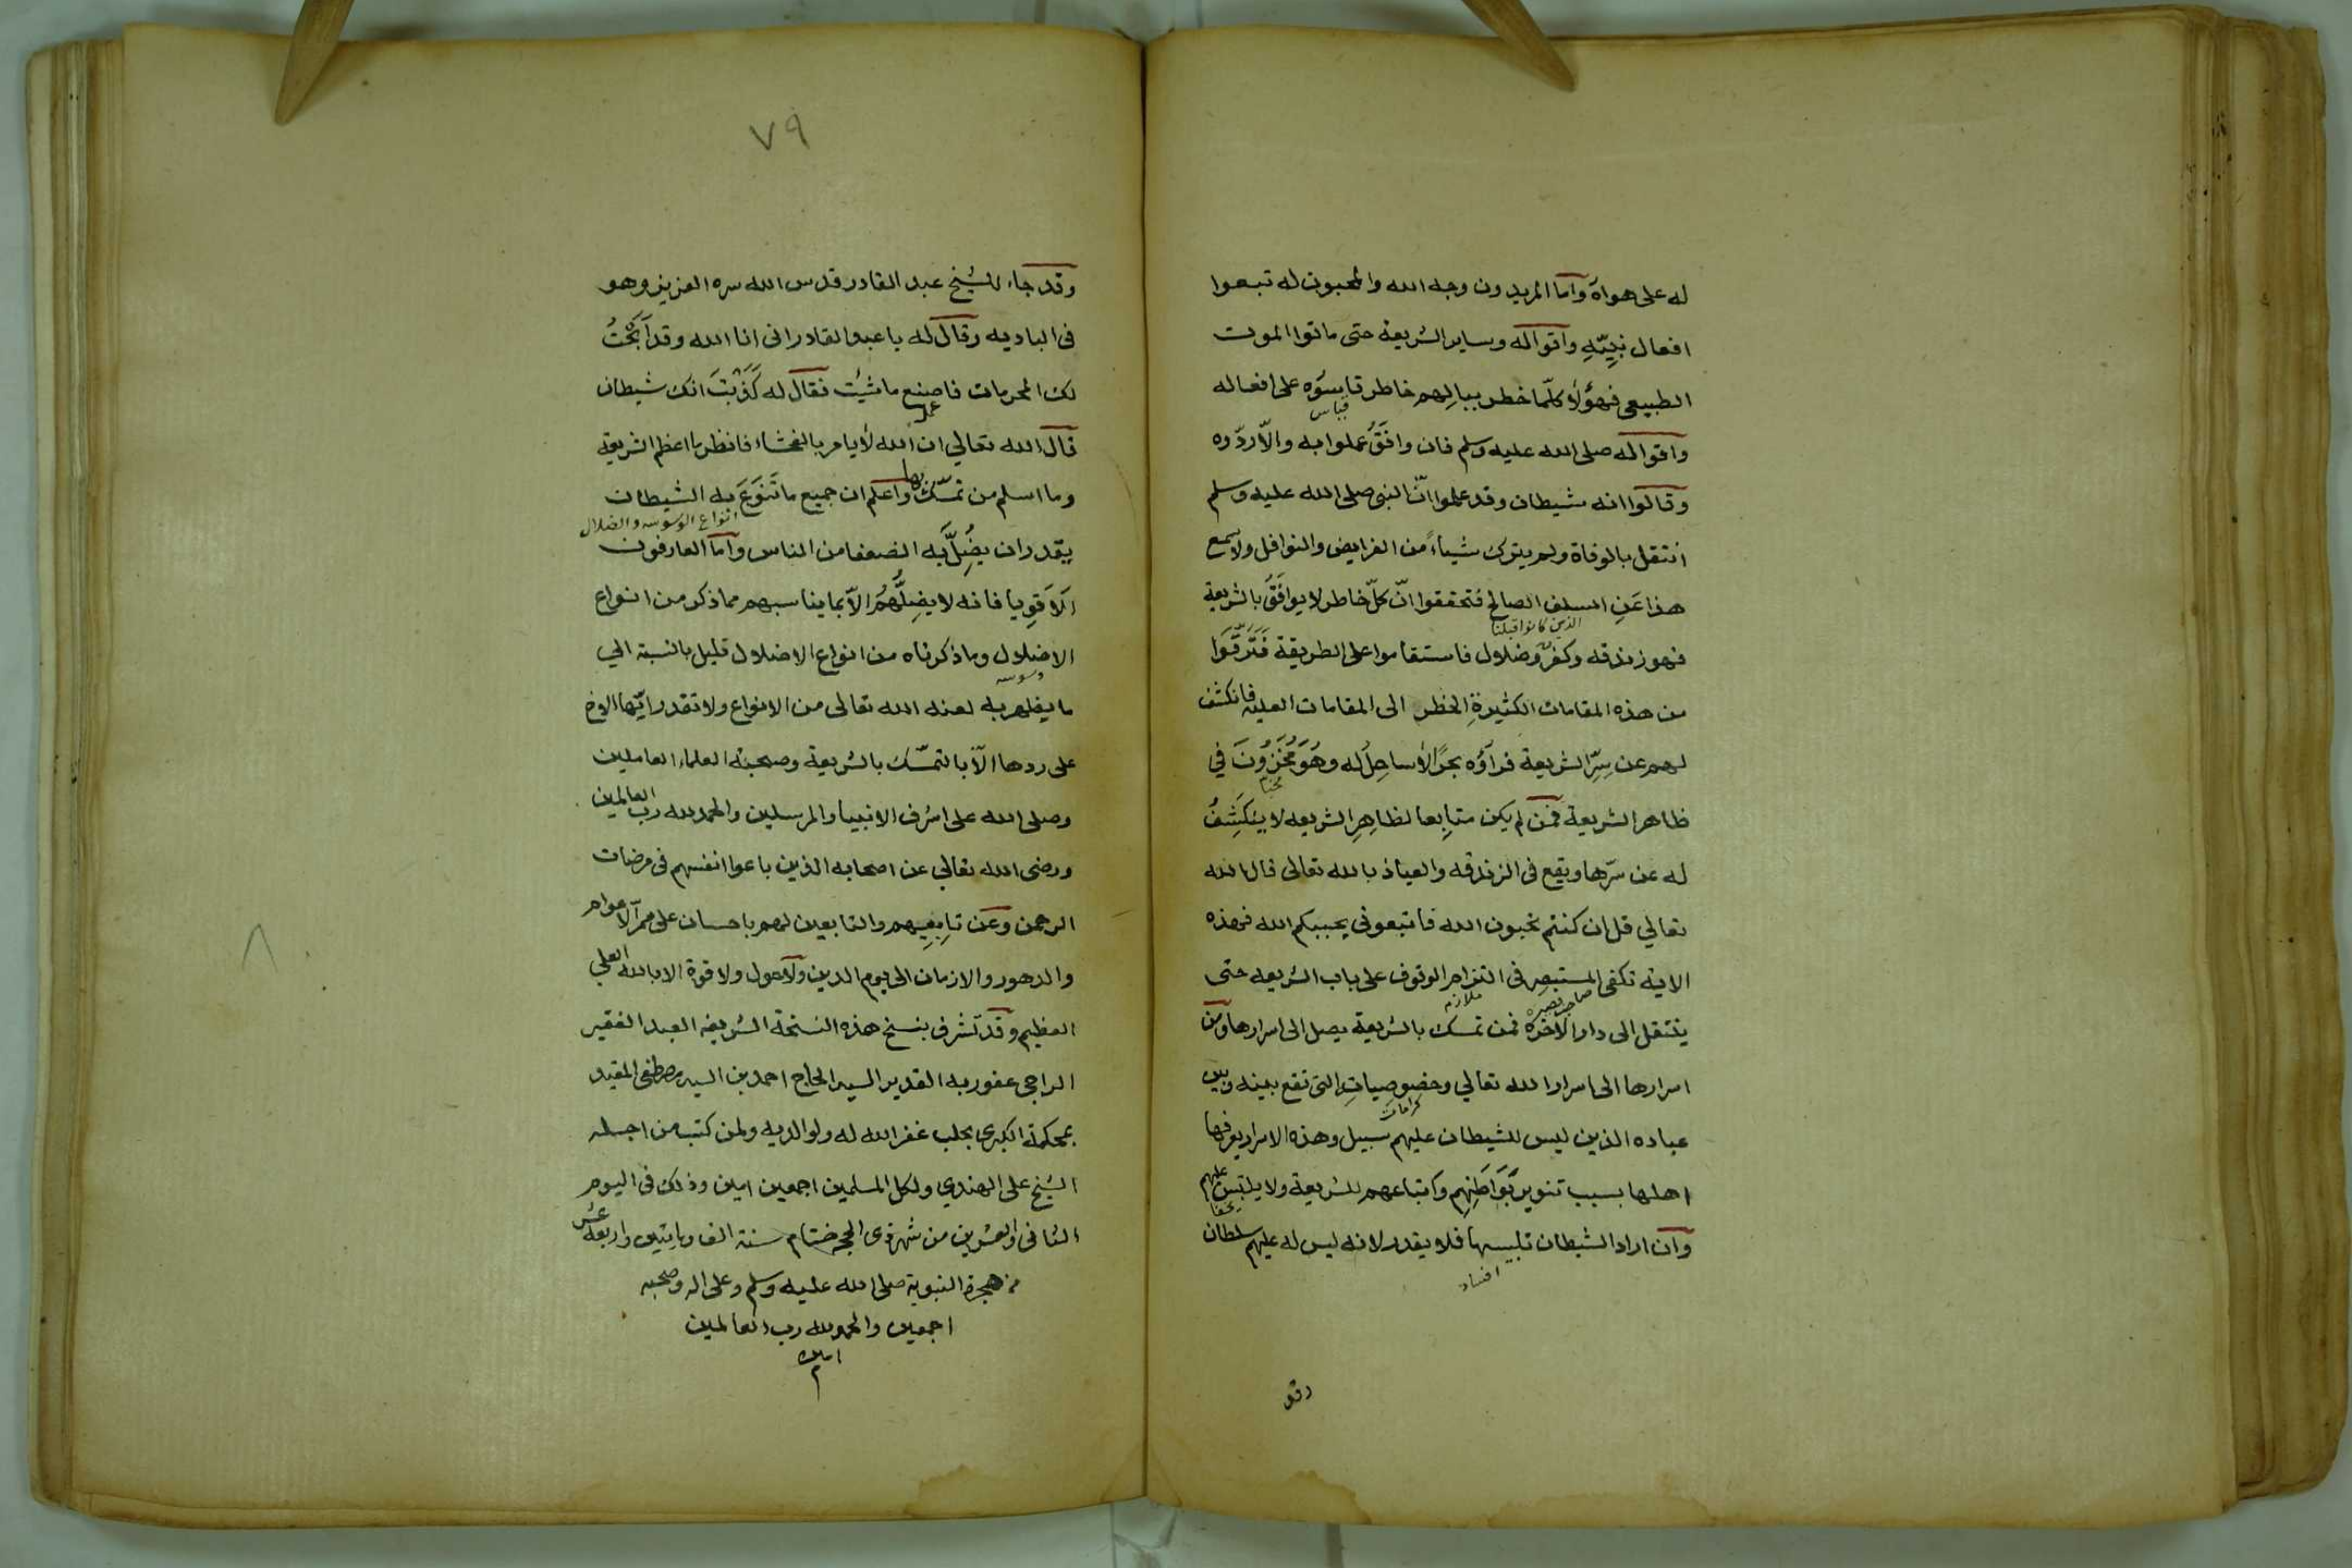 له على هواه واما المريدون وجه الله والمحبون له تبعوا
افعال نبيّه واقواله وساير الشريعة حتى ماتوا الموت
الطبيعى فهؤلاء كلّما خطر ببالهم خاطر قايسوه على افعاله
قياس
واقواله صلى الله عليه وسلم فان وافق عملوا به والّا ردّوه
وقالوا انه شيطان وقد علموا انّ النبى صلى الله عليه وسلم
انتقل بالوفاة ولم يترك شياءً من الفرايض والنوافل ولا سمع
هذا عن السلف الصالح فتحققوا انّ كلّ خاطر لا يوافق بالشريعة
الذين كانوا قبلنا
فهو زندقه وكفر وضلال فاستقاموا على الطريقة فترقّوا
من هذه المقامات الكثيرة الخطر الى المقامات العليه فانكشف
لهم عن سرّ الشريعة فرأوه بحرًا لا ساحل له وهو مخزون في
ظاهر الشريعة فمن لم يكن متابعا لظاهر الشريعه لا ينكشف
له عن سرّها ويقع فى الزندقه والعياذ بالله تعالى قال الله
تعالي قل ان كنتم تحبون الله فاتبعونى يحببكم الله فهذه
الاية تكفى المستبصر فى التزام الوقوف على باب الشريعه حتى
صاحب بصيره
ملازمه
ينتقل الى دار الاخره فمن تمسك بالشريعة يصل الى اسرارها ومن
اسرارها الى اسرار الله تعالي وخصوصيات التى تقع بينه وبين
كرامات
عباده الذين ليس للشيطان عليهم سبيل وهذه الاسرار يعرفها
اهلها بسبب تنوير بواطنهم واتباعهم للشريعة ولا يلتبس عليهم
وان اراد الشيطان تلبيسها فلا يقدر لانه ليس له عليهم سلطان
افساد
وقد
٧٩
وقد جاء للشيخ عبد القادر قدس الله سره العزيز وهو
فى الباديه وقال له يا عبد القادر انى انا الله وقد ابحتُ
لك المحرمات فاصنع ما شئت فقال له كذبتَ انك شيطان
قال الله تعالي ان الله لا يامر بالفحشاء فانظر ما اعظم الشريعة
وما اسلم من تمسّك بها واعلم ان جميع ما تنوّع به الشيطان
انواع الوسوسه والضلال
يقدر ان يضلّ به الضعفا من الناس واما العارفون
الاقويا فانه لا يضلّهم الّا بما يناسبهم مما ذكر من انواع
الاضلال وما ذكرناه من انواع الاضلال قليل بالنسبة الي
وسوسه
ما يظهر به لعنه الله تعالى من الانواع ولا تقدر ايّها الاخ
على ردها الّا بالتمسّك بالشريعة وصحبة العلماء العاملين
وصلى الله على اشرف الانبيا والمرسلين والحمد لله رب العالمين
ورضى الله تعالي عن اصحابه الذين باعوا انفسهم فى مرضات
الرحمن وعن تابعيهم والتابعين لهم باحسان على ممر الاعوام
والدهور والازمان الى يوم الدين ولا حول ولا قوة الا بالله العلي
العظيم وقد تشرف بنسخ هذه النسخة الشريفه العبد الفقير
الراجى عفو ربه القدير السيد الحاج احمد بن السيد مصطفى المقيد
بمحكمة الكبرى بحلب غفر الله له ولوالديه ولمن كتب من اجله
الشيخ على الهندي ولكل المسلمين اجمعين امين وذلك فى اليوم
الثانى والعشرين من شهر ذى الحجه ختام سنة الف ومايتين واربعة عشر
من هجرة النبوية صلى الله عليه وسلم وعلى اله وصحبه
اجمعين والحمد لله رب العالمين
امين
م
٨